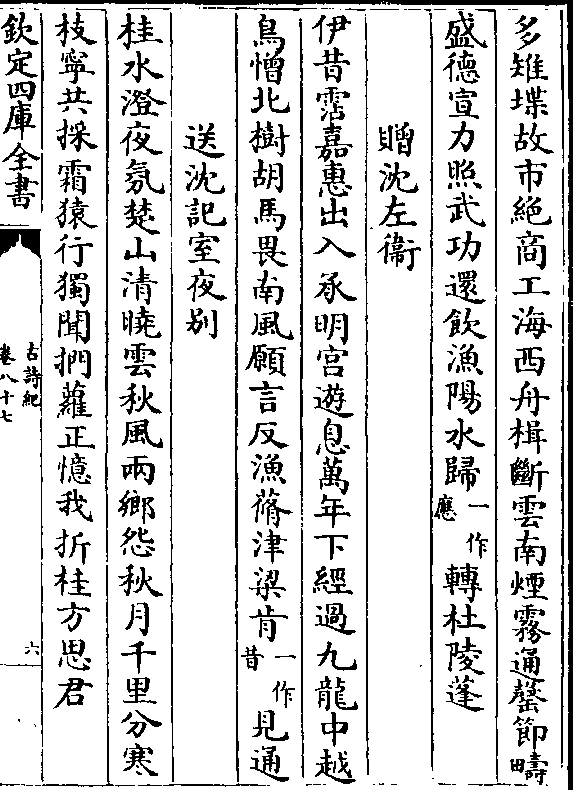 多雉堞故市絶商工海西舟楫斷雲南煙霧通罄節疇
盛德宣力照武功還飲漁陽水歸一作應轉杜陵蓬
贈沈左衞
伊昔霑嘉惠出入承明宮遊息萬年下經過九龍中越
鳥憎北樹胡馬畏南風願言反漁蓨津梁肯一作昔見通
送沈記室夜别
桂水澄夜氛楚山清曉雲秋風兩鄉怨秋月千里分寒
枝寧共採霜猿行獨聞捫蘿正憶我折桂方思君
欽定四庫全書
古詩紀
卷八十七
六